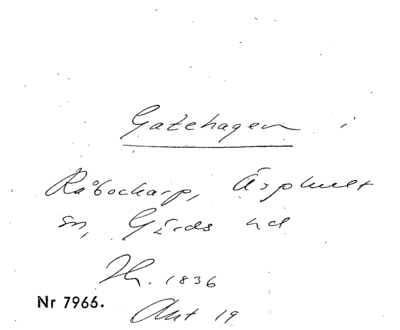 Gatehagen i
Råbockarp, Äsphult
sn, Gärds hd
Th. 1836
Nr 7966.
Akt 19